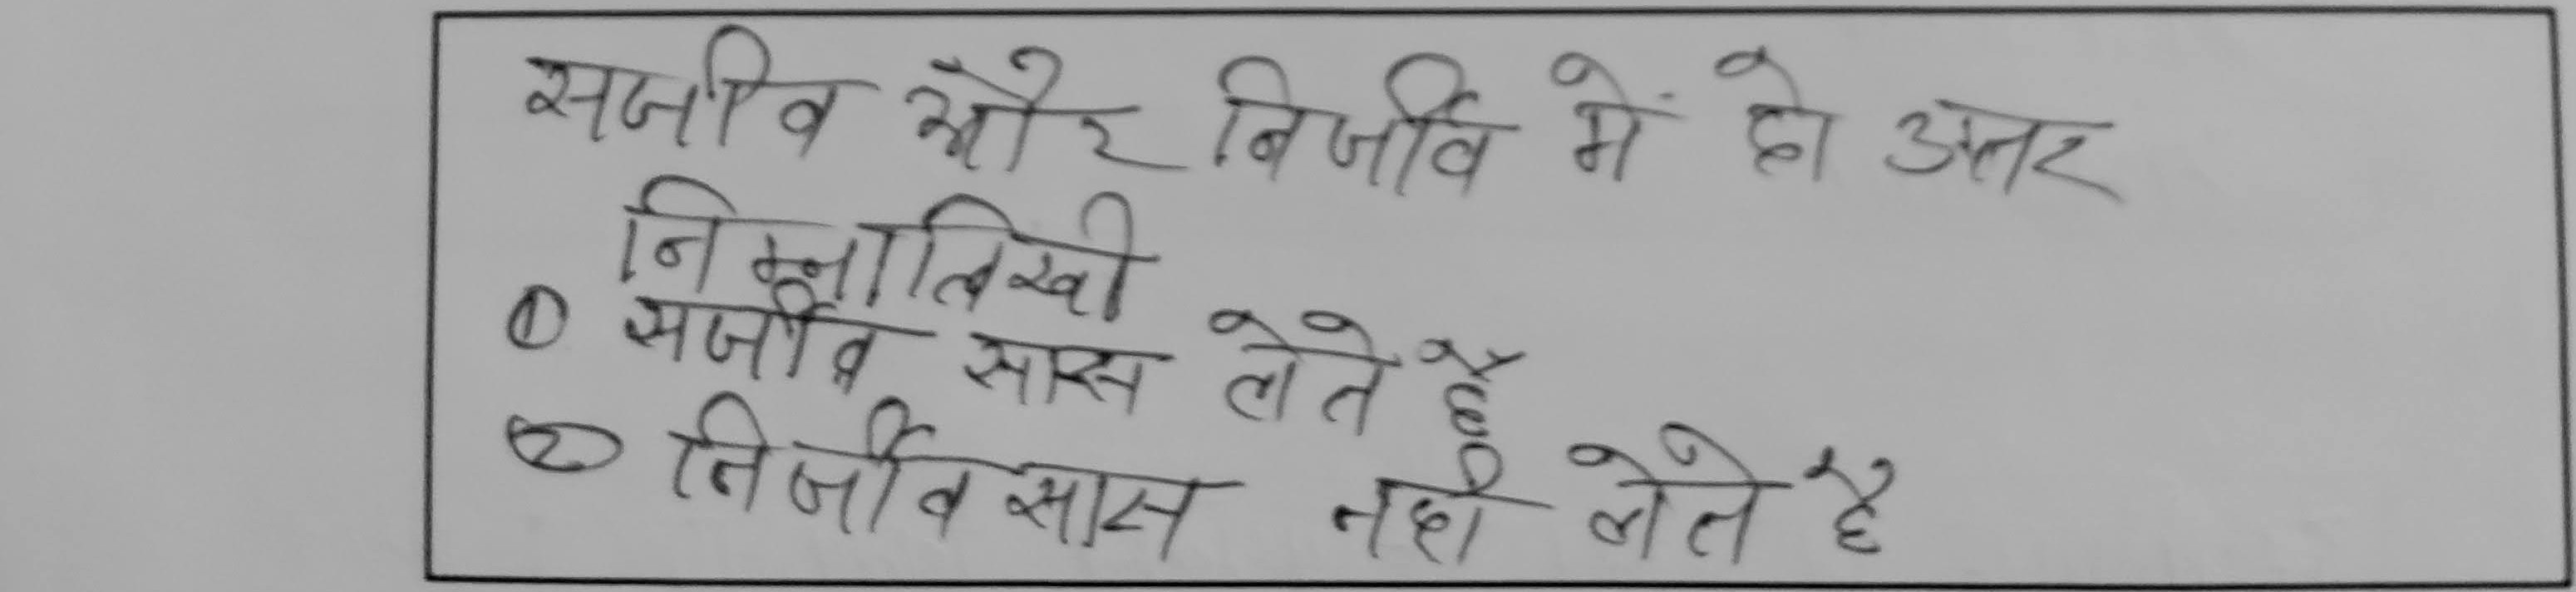 सजीव और निर्जीव में दो अन्तर
निम्नालिखी
① सजीव सास लेते है
② निर्जीव सास नही लेते है